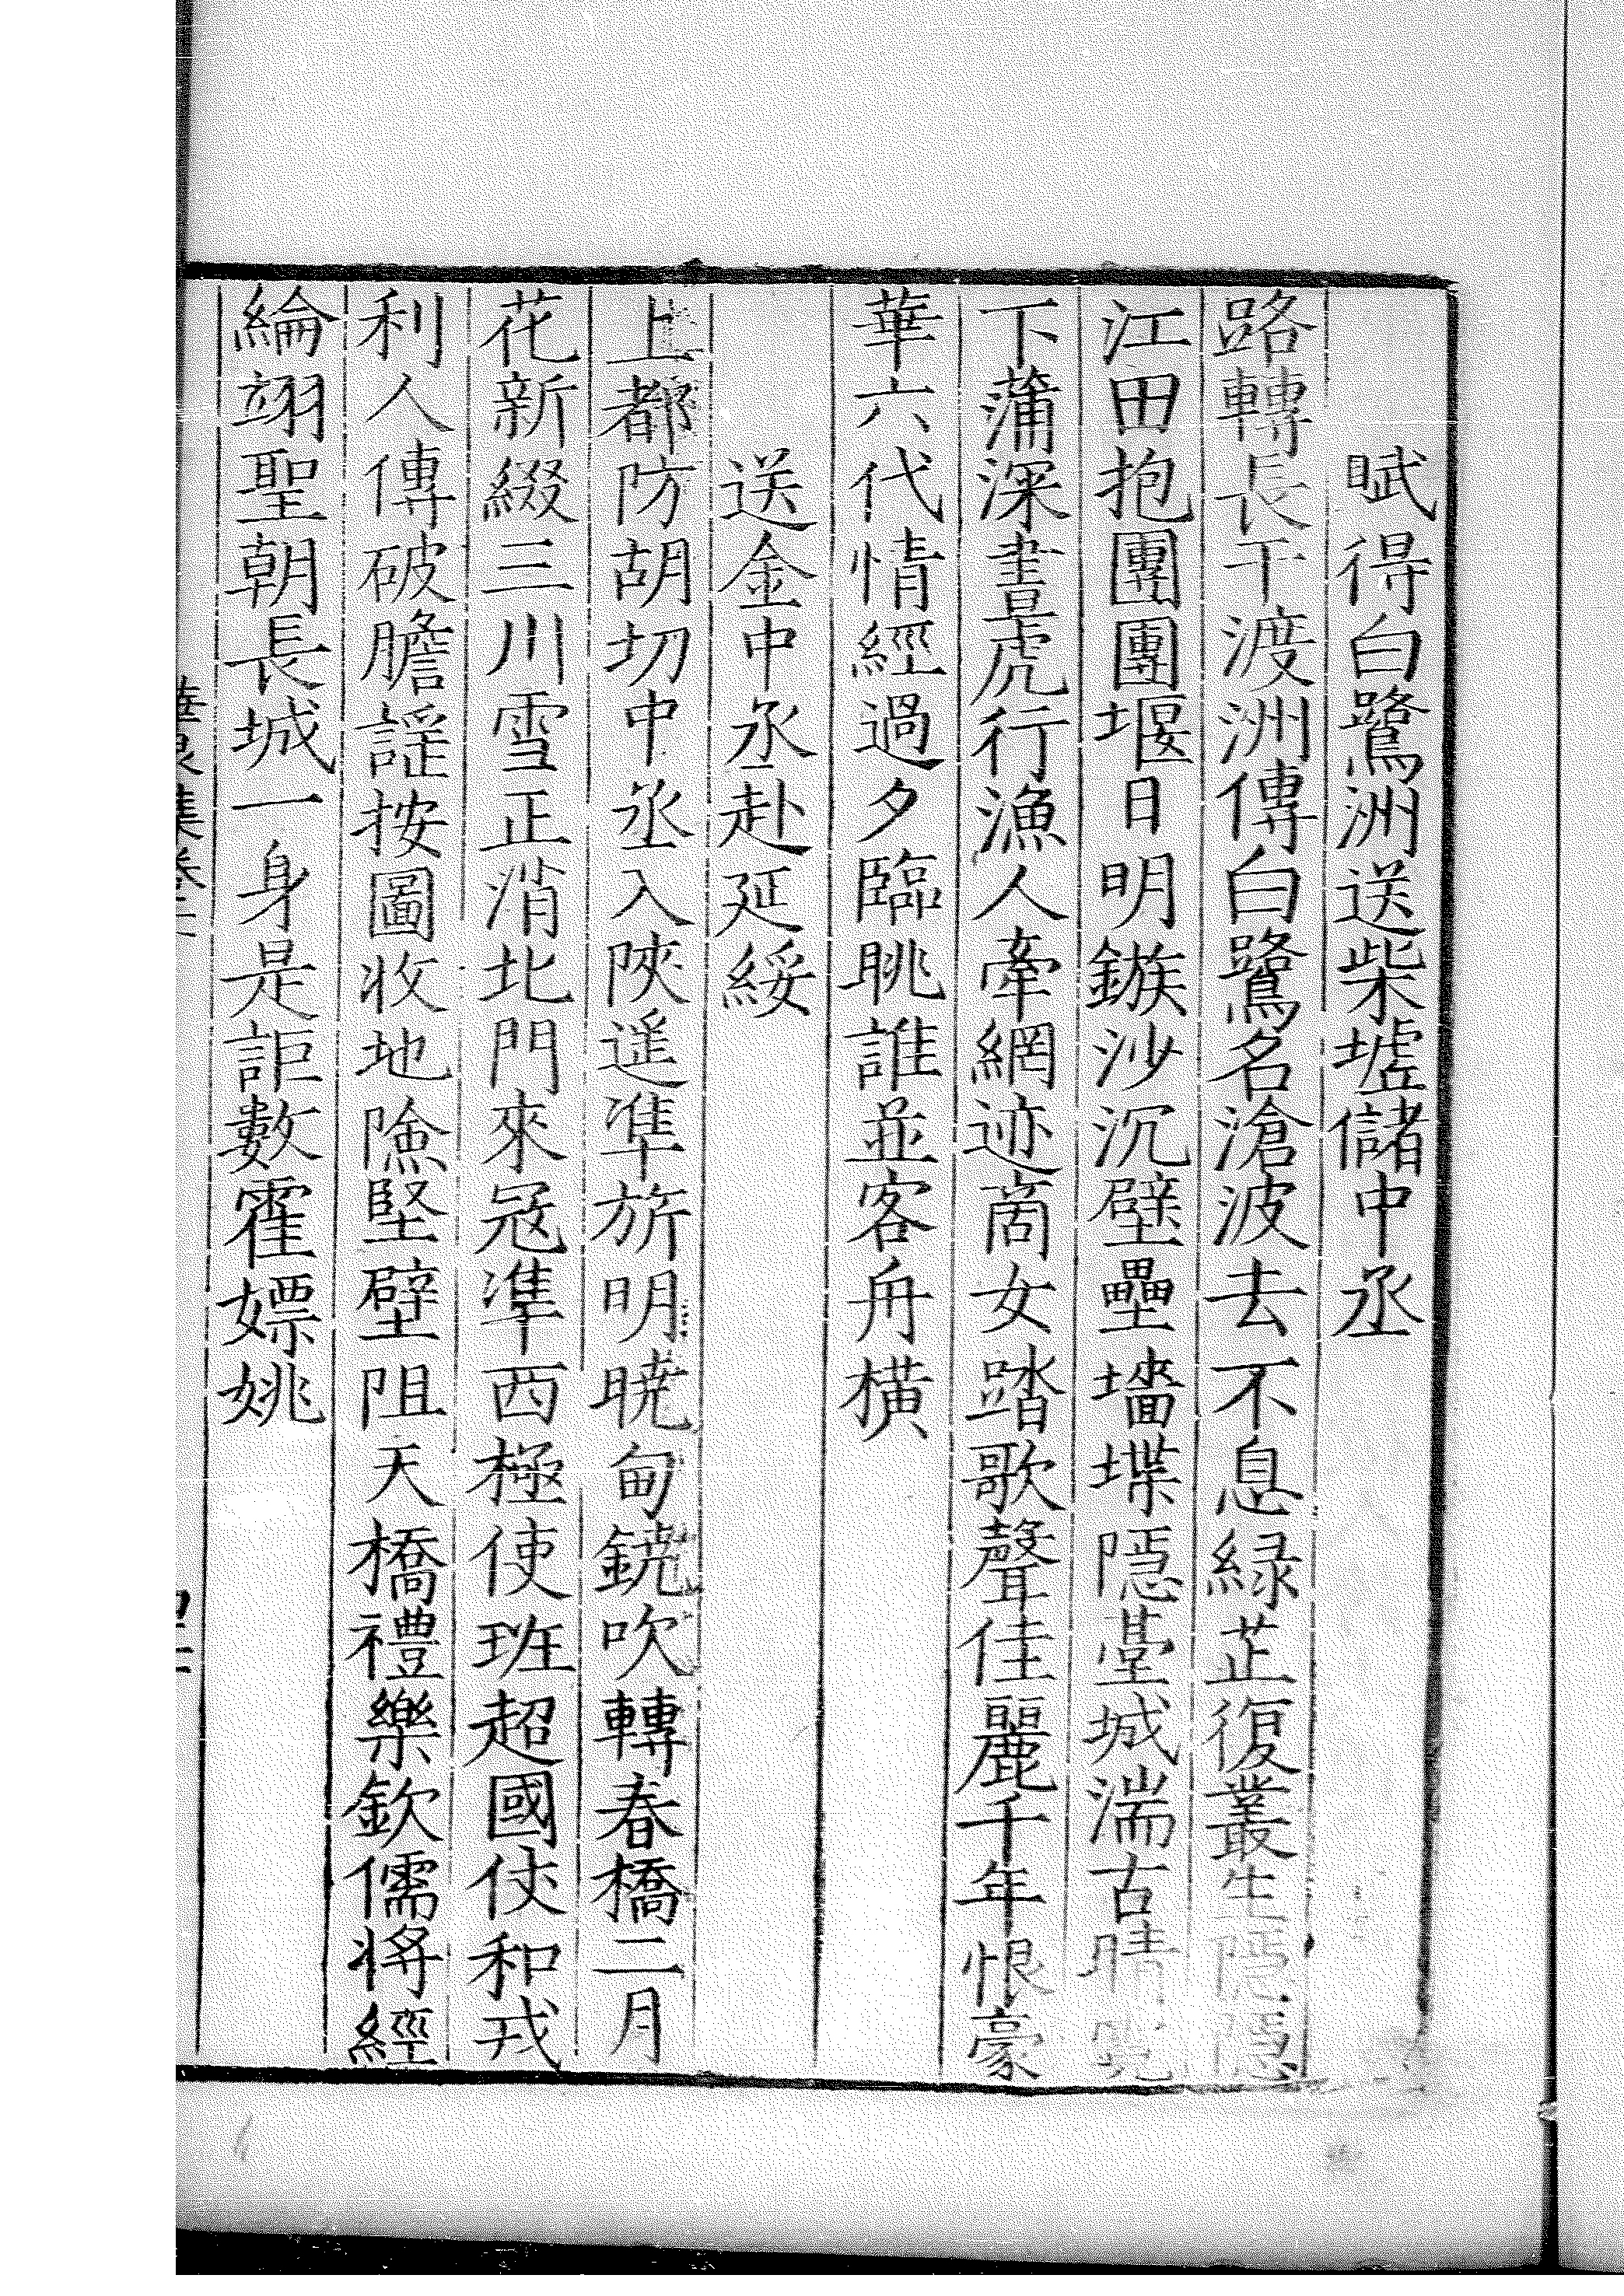 賦得白鷺洲送柴墟儲中丞
路轉長干渡洲傳白鷺名滄波去不息緑芷復叢生隠隠
江田抱團團堰日明鏃沙沉壁壘墻堞隠臺城湍古晴
下蒲深晝虎行漁人牽網迹啇女踏歌聲佳麗千年恨豪
華六代情經過夕臨眺誰並客舟橫
送金中丞赴延綏
上都防胡切中丞入陜遥凖旂明曉甸鐃吹轉春橋二月
花新綴三川雪正消北門來冦凖西極使班超國伏和戎
利人傳破膽謡按圖收地險堅壁阻天橋禮樂欽儒將經
綸翊聖朝長城一身是詎數霍嫖姚
華泉集卷二